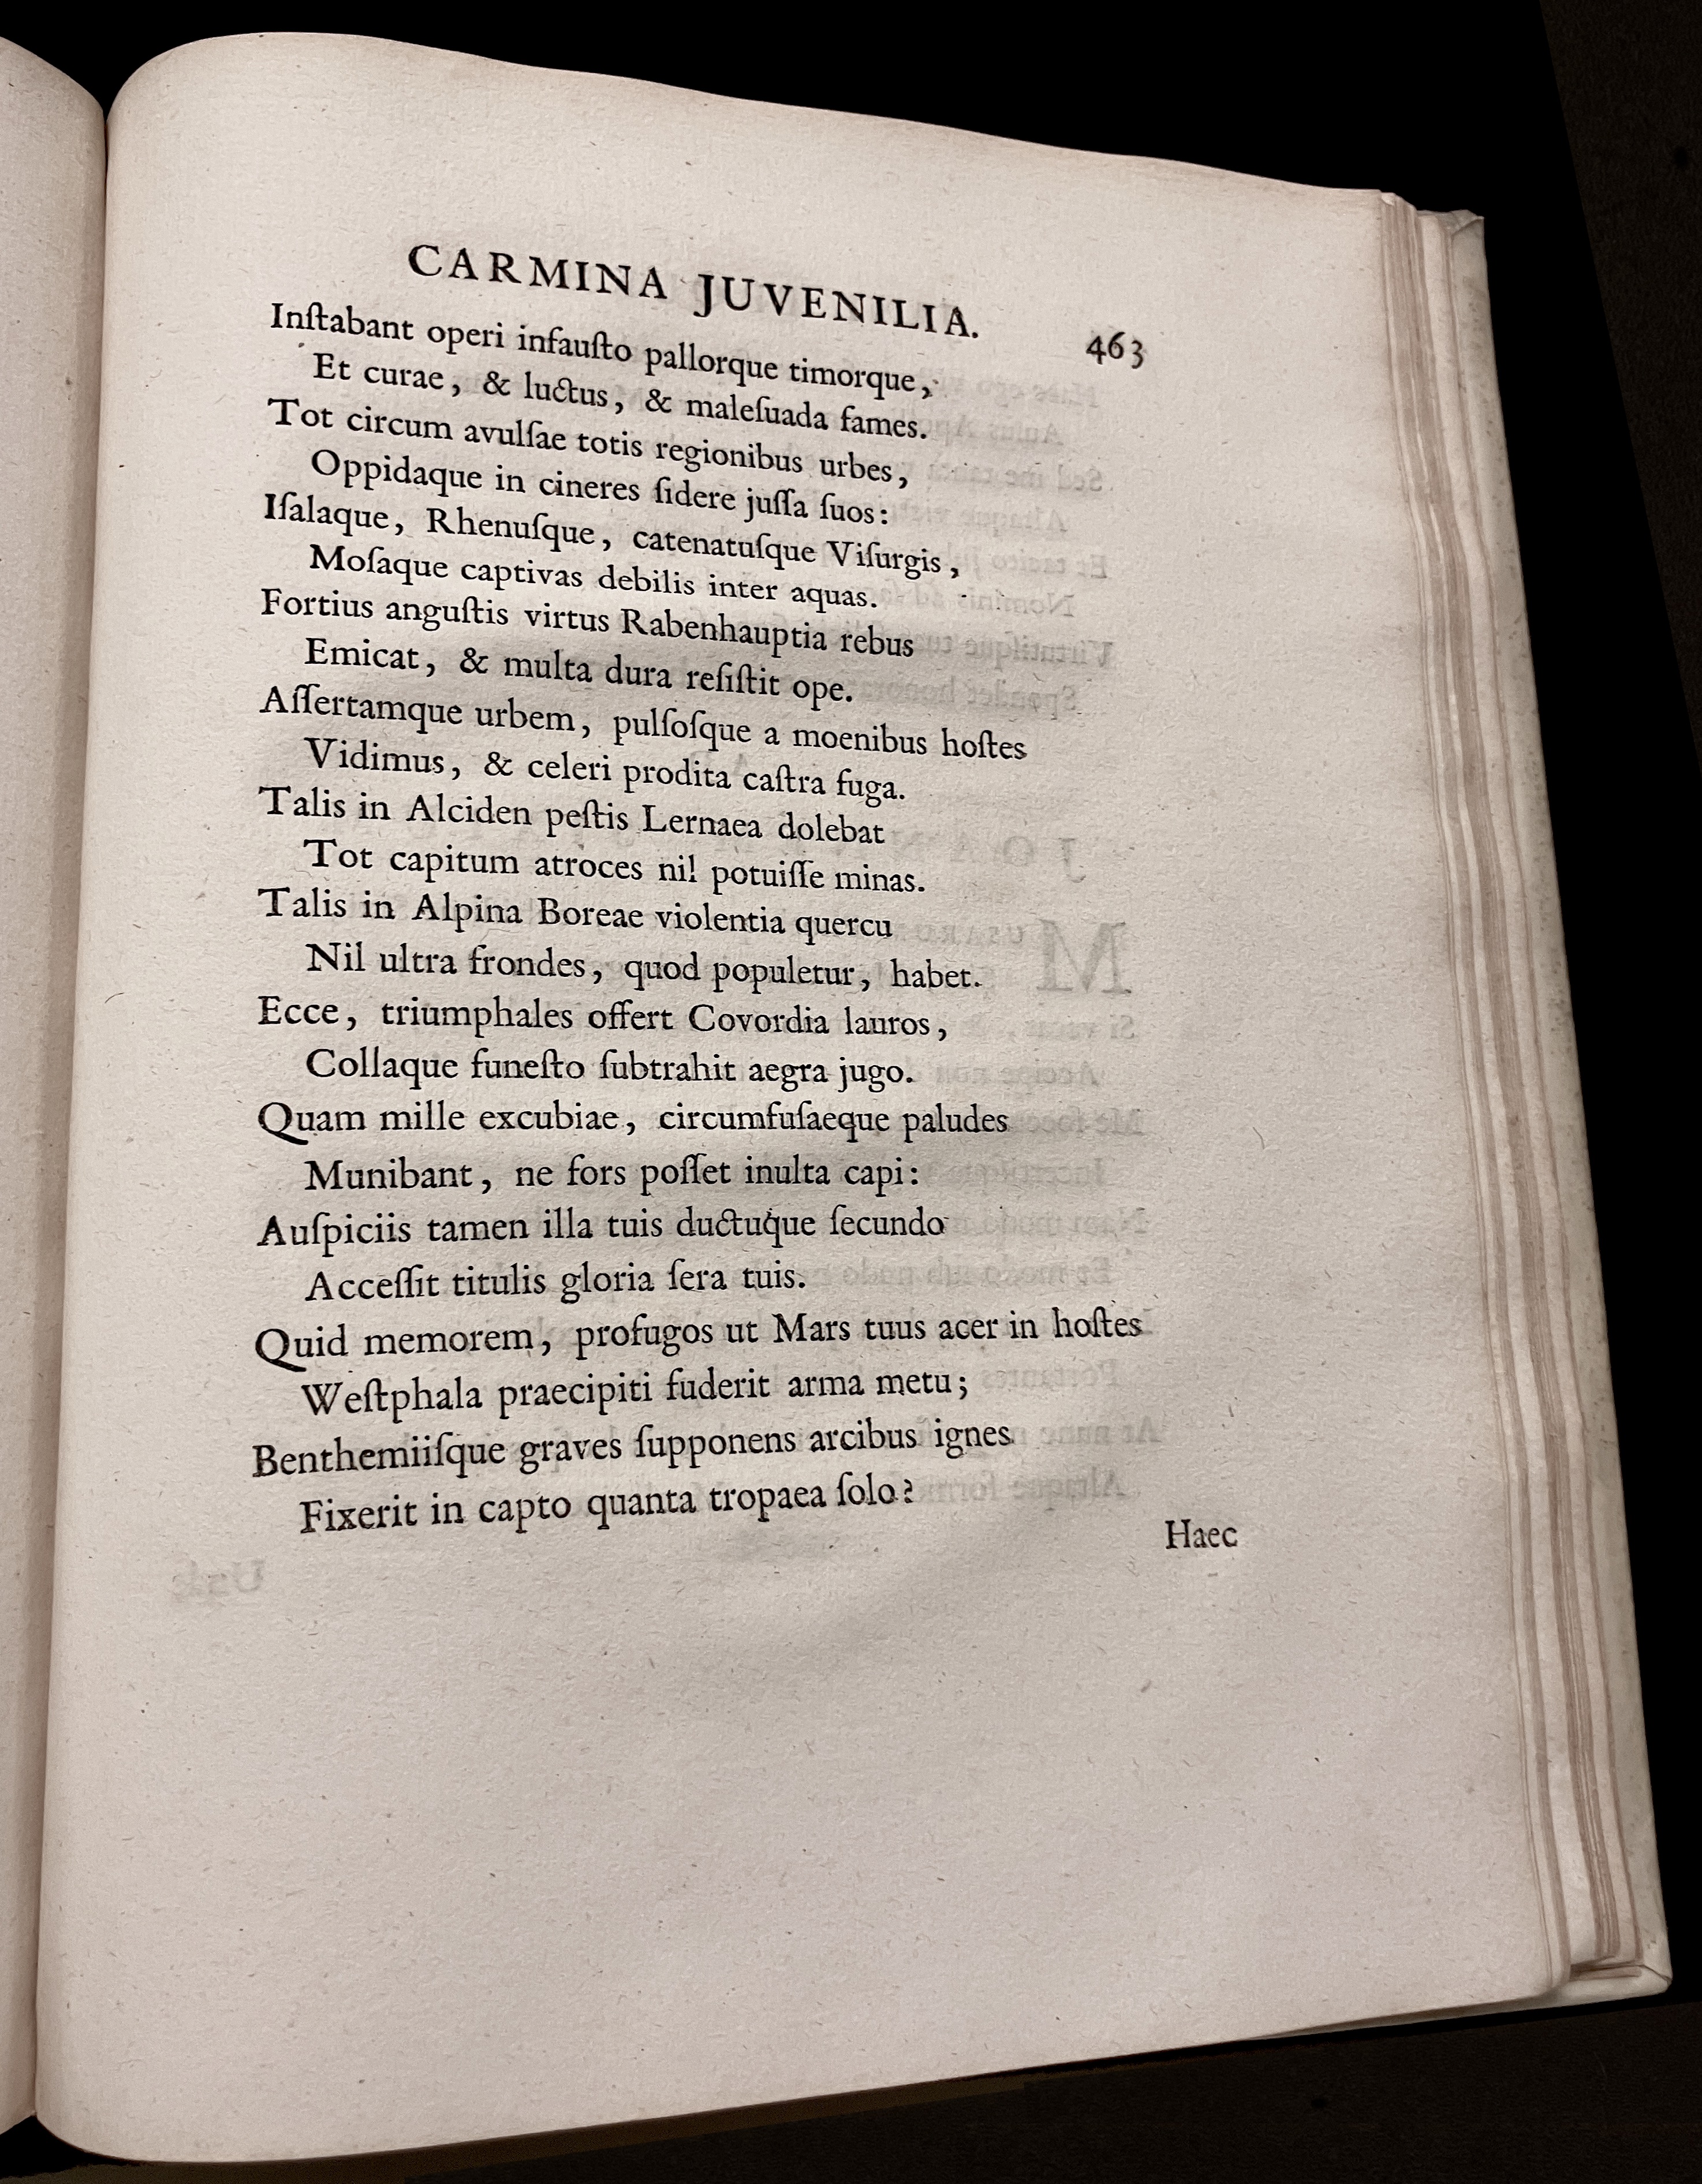 CARMINA JUVENILIA. 463
Inſtabant operi infauſto pallorque timorque,
Et curae, & luctus, & maleſuada fames.
Tot circum avulſae totis regionibus urbes,
Oppidaque in cineres ſidere juſſa ſuos:
Iſalaque, Rhenuſque, catenatuſque Viſurgis,
Moſaque captivas debilis inter aquas.
Fortius anguſtis virtus Rabenhauptia rebus
Emicat, & multa dura reſiſtit ope.
Aſſertamque urbem, pulſoſque a moenibus hoſtes
Vidimus, & celeri prodita caſtra fuga.
Talis in Alciden peſtis Lernaea dolebat
Tot capitum atroces nil potuiſſe minas.
Talis in Alpina Boreae violentia quercu
Nil ultra frondes, quod populetur, habet.
Ecce, triumphales offert Covordia lauros,
Collaque funeſto ſubtrahit aegra jugo.
Quam mille excubiae, circumfuſaeque paludes
Munibant, ne fors poſſet inulta capi:
Auſpiciis tamen illa tuis ductuque ſecundo
Acceſſit titulis gloria ſera tuis.
Quid memorem, profugos ut Mars tuus acer in hoſtes
Weſtphala praecipiti fuderit arma metu;
Benthemiiſque graves ſupponens arcibus ignes
Fixerit in capto quanta tropaea ſolo?
Haec